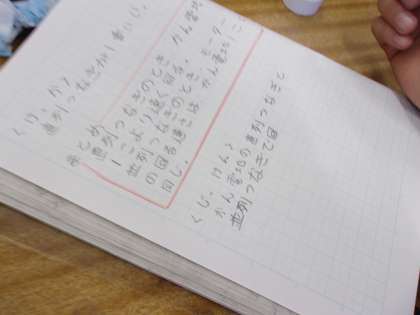 直列つなぎが1番いい。
まとめ
直列つなぎのとき かん電池
1こより速く回る。
並列つなぎのとき モーター
の回る速さは かん電池1こ
同じ.
くじ、けん>
かん電池の直列つなぎと
並列つなぎで回